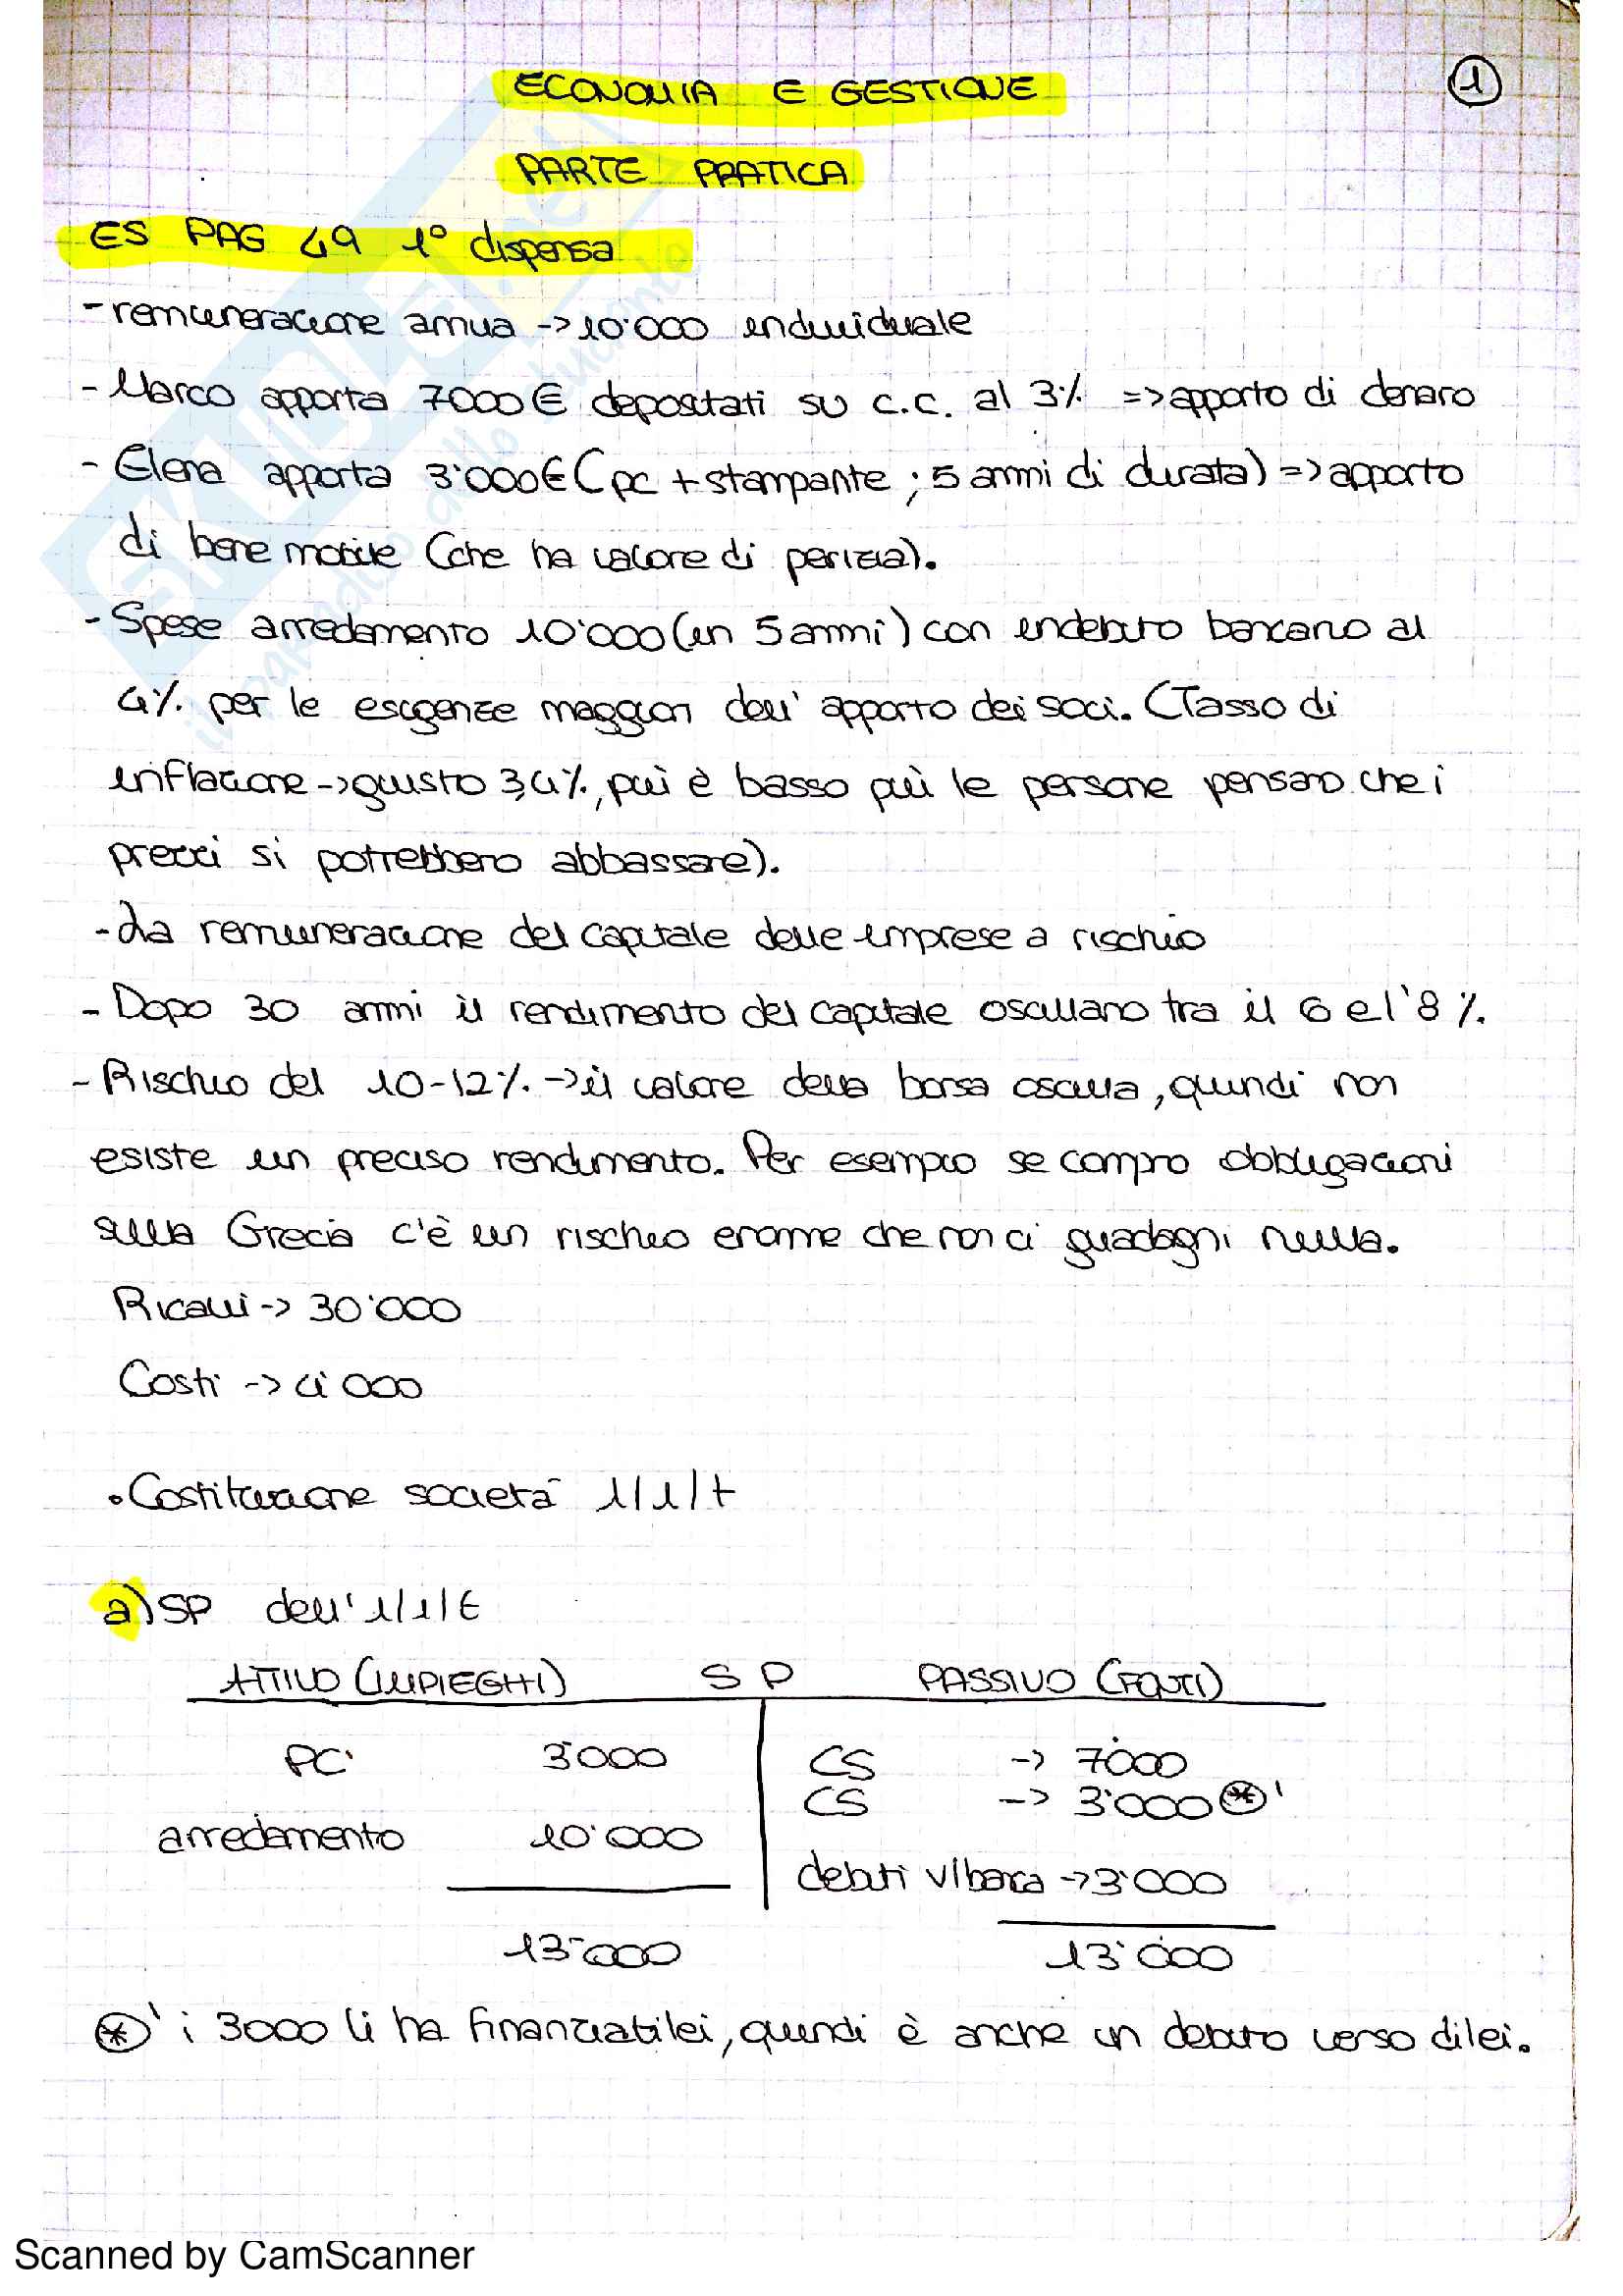 ECONOMIA E GESTIONE
1
PARTE PRATICA
ES PAG 49 1° dispensa
- remunerazione annua -> 10'000 individuale
- Marco apporta 7000€ depositati su c.c. al 3% => apporto di denaro
- Elena apporta 3'000€ (pc + stampante ; 5 anni di durata) => apporto
di bene mobile (che ha valore di perizia).
- Spese arredamento 10'000 (in 5 anni) con indebito bancario al
4% per le esigenze maggiori dell' apporto dei soci. (Tasso di
inflazione -> giusto 3,4%, più è basso più le persone pensano che i
prezzi si potrebbero abbassare).
- La remunerazione del capitale delle imprese a rischio
- Dopo 30 anni il rendimento del capitale oscillano tra il 6 e l'8 %.
- Rischio del 10-12% -> il valore della borsa oscilla, quindi non
esiste un preciso rendimento. Per esempio se compro obbligazioni
sulla Grecia c'è un rischio enorme che non ci guadagni nulla.
Ricavi -> 30'000
Costi -> 4'000
• Costituzione società 1/1/t
a) SP dell' 1/1/t
ATTIVO (IMPIEGHI) SP PASSIVO (FONTI)
PC 3'000 CS -> 7'000
CS -> 3'000 *'
arredamento 10'000
debiti v/banca -> 3'000
13'000 13'000
*' i 3000 li ha finanziati lei, quindi è anche un debito verso di lei.
SKUOLA.net
imparando dallo studente
Scanned by CamScanner